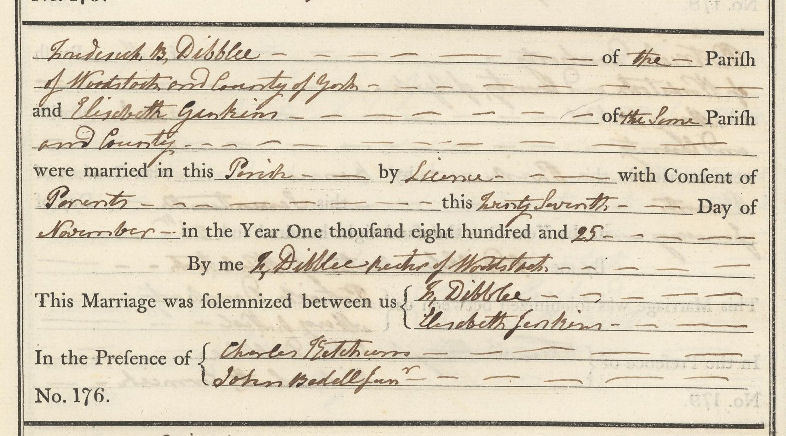 Frederick B, Dibblee — of the — Pariſh
of Woodstock and County of York
and Elisabeth Gerkins — of the Same Pariſh
and County
were married in this Parish — by Licence — with Conſent of
Parents — this Twenty Seventh — Day of
November — in the Year One thouſand eight hundred and 25
By me F, Dibblee Rector of Woodstock
This Marriage was ſolemnized between us { F, Dibblee
Elisabeth Jerkins
In the Preſence of { Charles Ketchum
John Bedell Junr
No. 176.